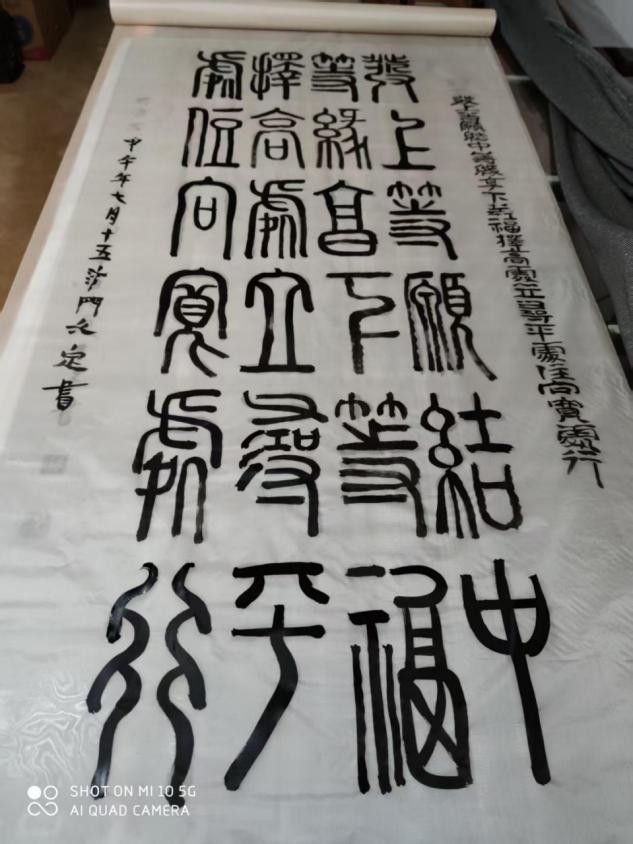 發上等願結中等緣享下等福擇高處立尋平處住向寬處行
發上等願結中
等緣享下等福
擇高處立尋平
處住向寬處行
甲午年七月十五沙門定書
SHOT ON MI 10 5G
AI QUAD CAMERA